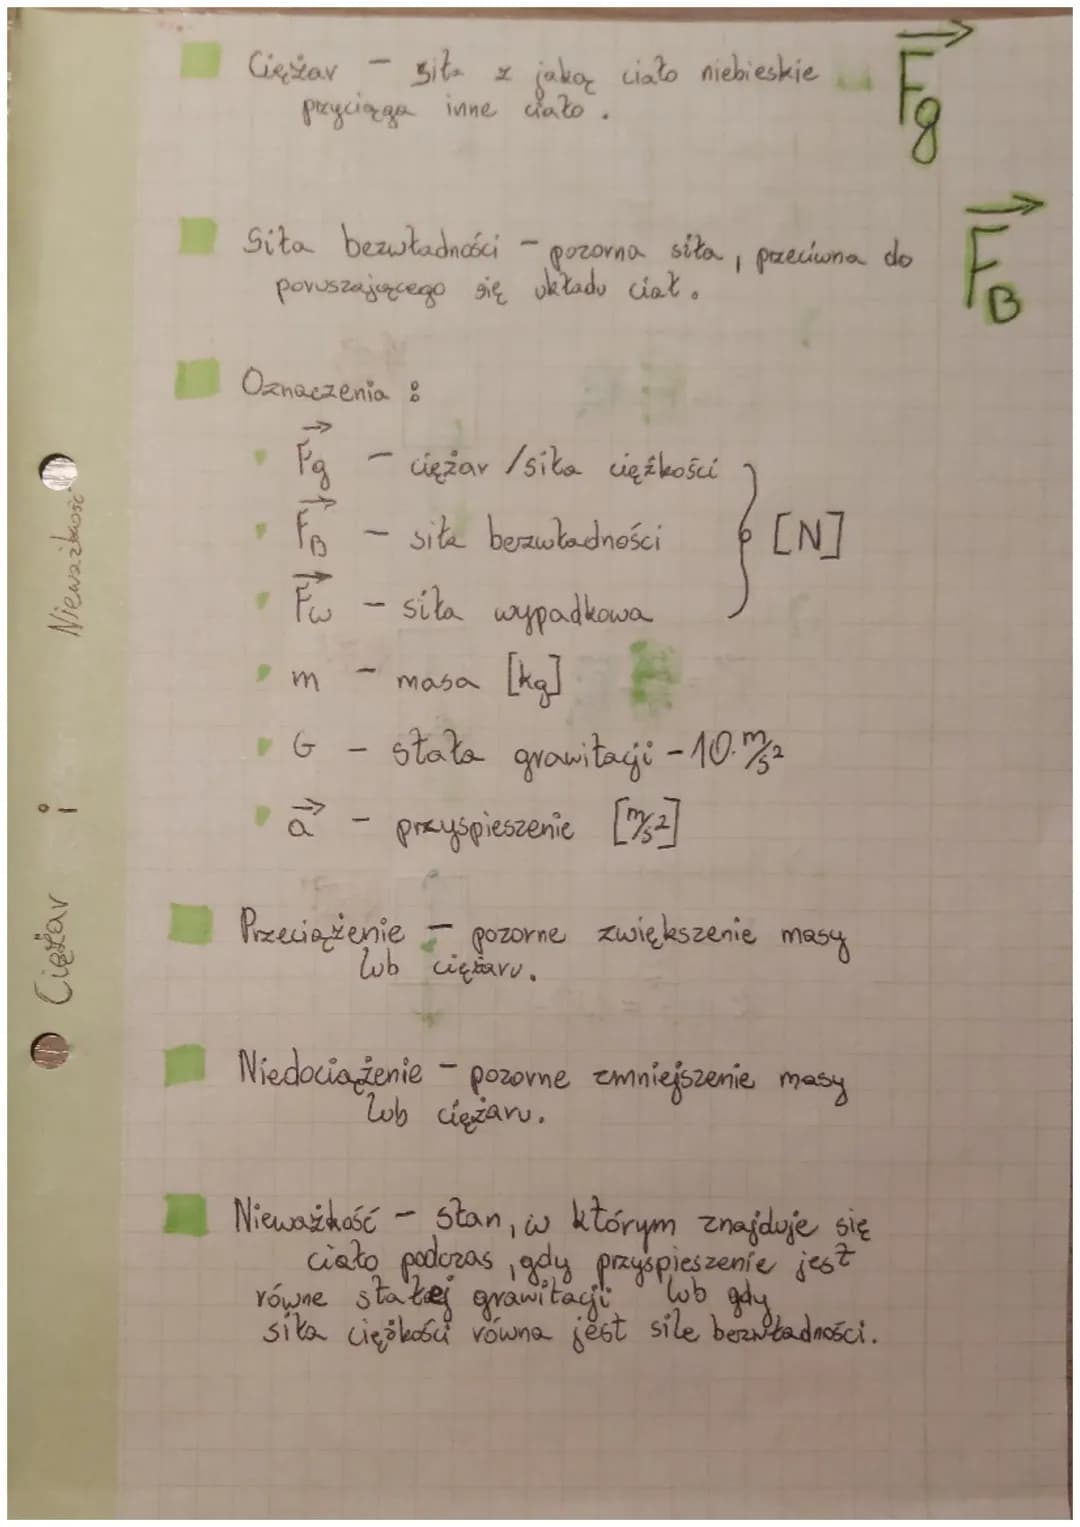 Ciężar i Nieważkość
Ciężar - siła z jaką ciało niebieskie
przyciąga inne ciało.
Fg
Siła bezwładności - pozorna siła, przeciwna do
poruszającego się układu ciał.
FB
Oznaczenia:
Fg - ciężar /siła ciężkości
FB - siła bezwładności [N]
Fw - siła wypadkowa
m - masa [kg]
G - stała grawitacji - 10 m/s²
a - przyspieszenie [m/s²]
Przeciążenie - pozorne zwiększenie masy
lub ciężaru.
Niedociążenie - pozorne zmniejszenie masy
lub ciężaru.
Nieważkość - stan, w którym znajduje się
ciało podczas, gdy przyspieszenie jest
równe stałej grawitacji lub gdy
siła ciężkości równa jest sile bezwładności.